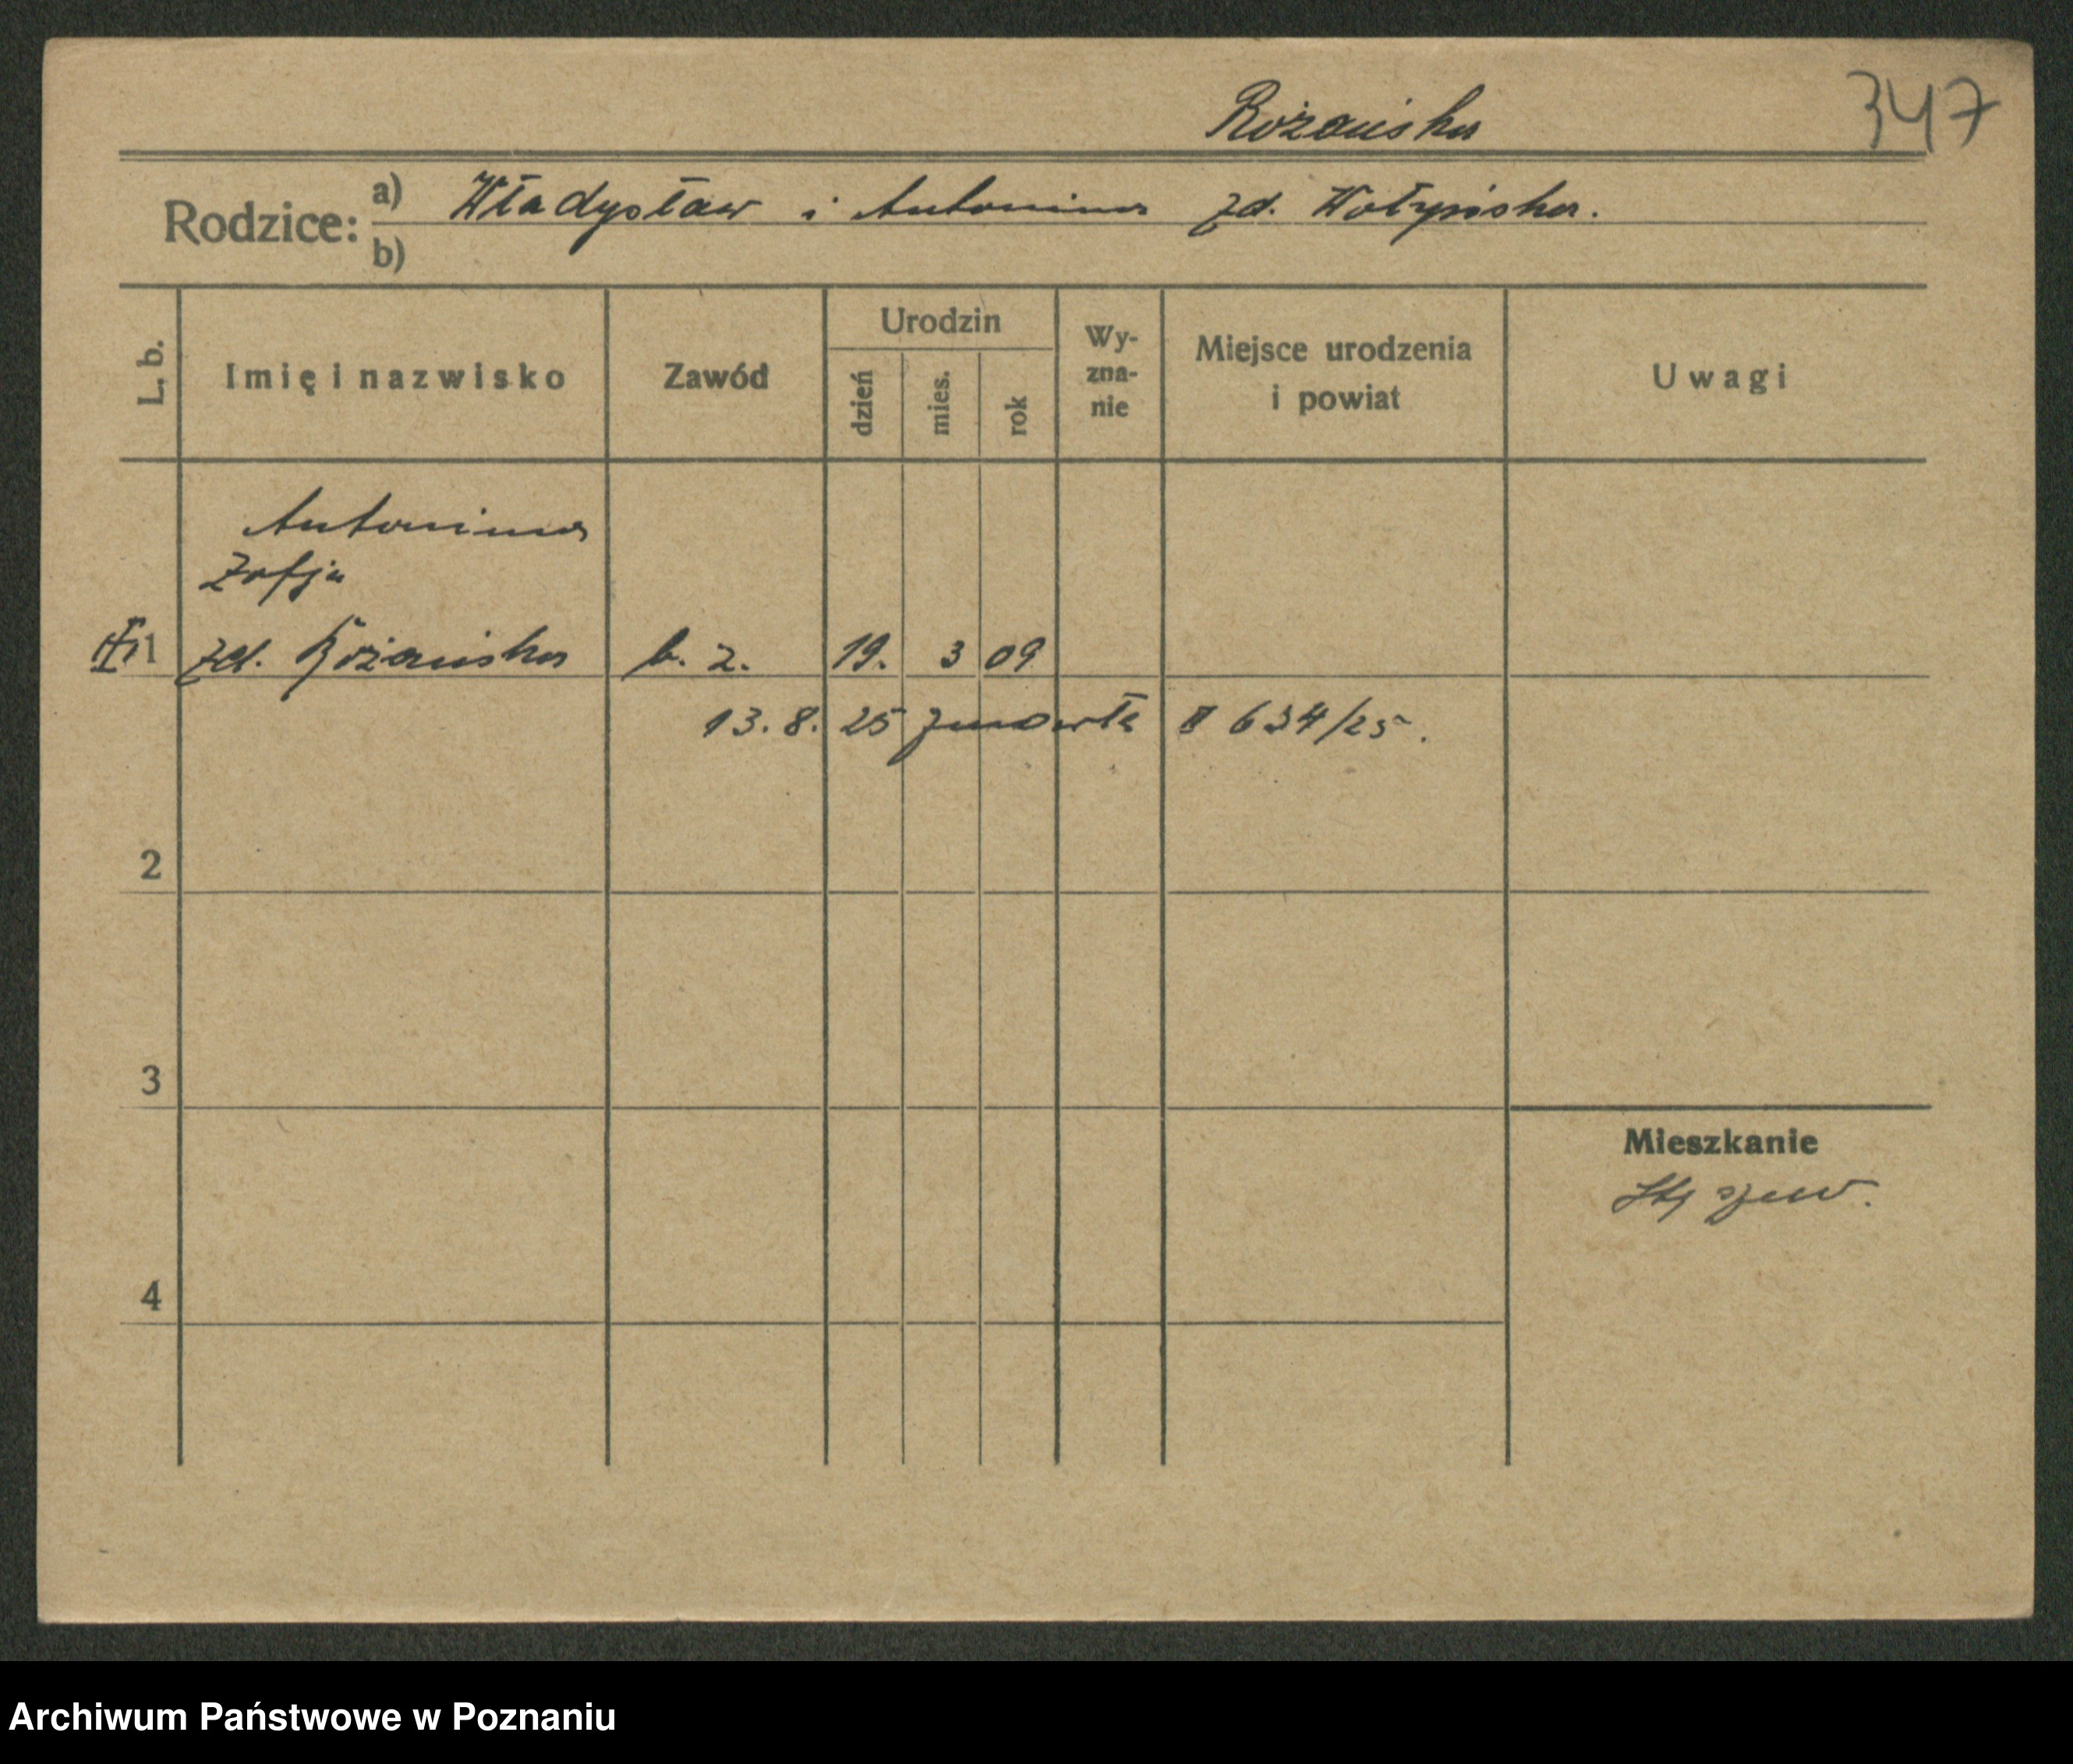 Rożańska 347
Rodzice: a) Władysław i Antonina zd. Wołyńska.
b)
L. b. Imię i nazwisko Zawód Urodzin dzień mies. rok Wyznanie Miejsce urodzenia i powiat Uwagi
Antonina
Zofja
1 zd. Rożańska b. z. 19. 3 09
13. 8. 25 zmarła 634/25.
2
3
Mieszkanie
4
Archiwum Państwowe w Poznaniu